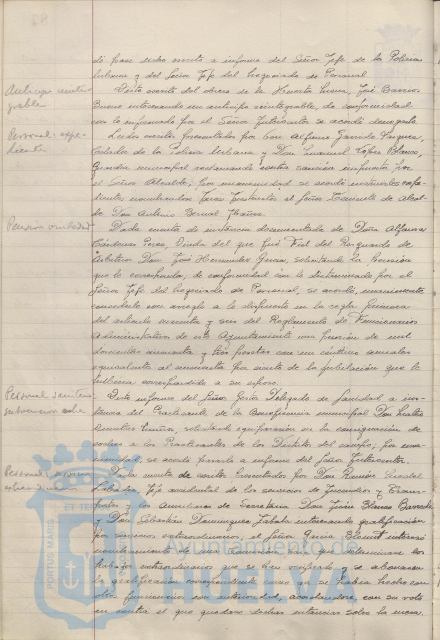 dó pase dicho escrito a informe del Señor Jefe de la Policía
Urbana y del Señor Jefe del Negociado de Personal.
Anticipo reinte-
grable
Visto escrito del obrero de la Imprenta José Barrios
Bueno interesando un anticipo reintegrable, de conformidad
con lo informado por el Señor Interventor se acordó denegarlo.
Personal: expe-
diente
Leidos escritos presentados por Don Alfonso Garrido Vazquez,
Celador de la Policía Urbana y Don Manuel López Blanco,
Guardia municipal reclamando contra sanción impuesta por
el Señor Alcalde; por unanimidad se acordó instruirles expe-
dientes nombrándose Juez Instructor al Señor Teniente de Alcal-
de Don Antonio Bernal
Pension viudedad
Dada cuenta de instancia documentada de Doña
Cárdenas Perea, Viuda del que fué Fiel del Resguardo de
Arbitrios Don José Hernández solicitando la pensión
que le corresponda; de conformidad con lo dictaminado por el
Señor Jefe del Negociado de Personal, se acordó, unanimemente
concederle con arreglo a lo dispuesto en la regla primera
del artículo cuarenta y seis del Reglamento de Funcionarios
Administrativos de este Ayuntamiento una pensión de mil
doscientas cincuenta y tres pesetas con un céntimo anuales
equivalente al cincuenta por ciento de la jubilación que le
hubiera correspondido a su esposo.
Personal sanitario
Visto informe del Señor Gestor Delegado de Sanidad a ins-
tancia del Practicante de la Beneficencia municipal Don Carlos
González solicitando equiparación en la consignación de
coches a los Practicantes de los Distritos del campo, por una-
nimidad, se acordó pasarlo a informe del Señor Interventor.
Personal:
extraordinarios
Dada cuenta de escritos presentados por Don Ramón
Jefe accidental de los servicios de
y los Auxiliares de Secretaría Don José Blanco
y Don Sebastián Dominguez Zabala interesando gratificación
por servicios extraordinarios; el Señor Blomet interesó
nombramiento de una Comisión para que determinase los
trabajos extraordinarios que se han verificado y se abonaran
la gratificación correspondiente como que se había hecho con
otros funcionarios con anterioridad, acordándose, con su voto
en contra el que quedaran dichas instancias sobre la mesa.
ET TERRÆ
PORTUS MARIS
Ayuntamiento de